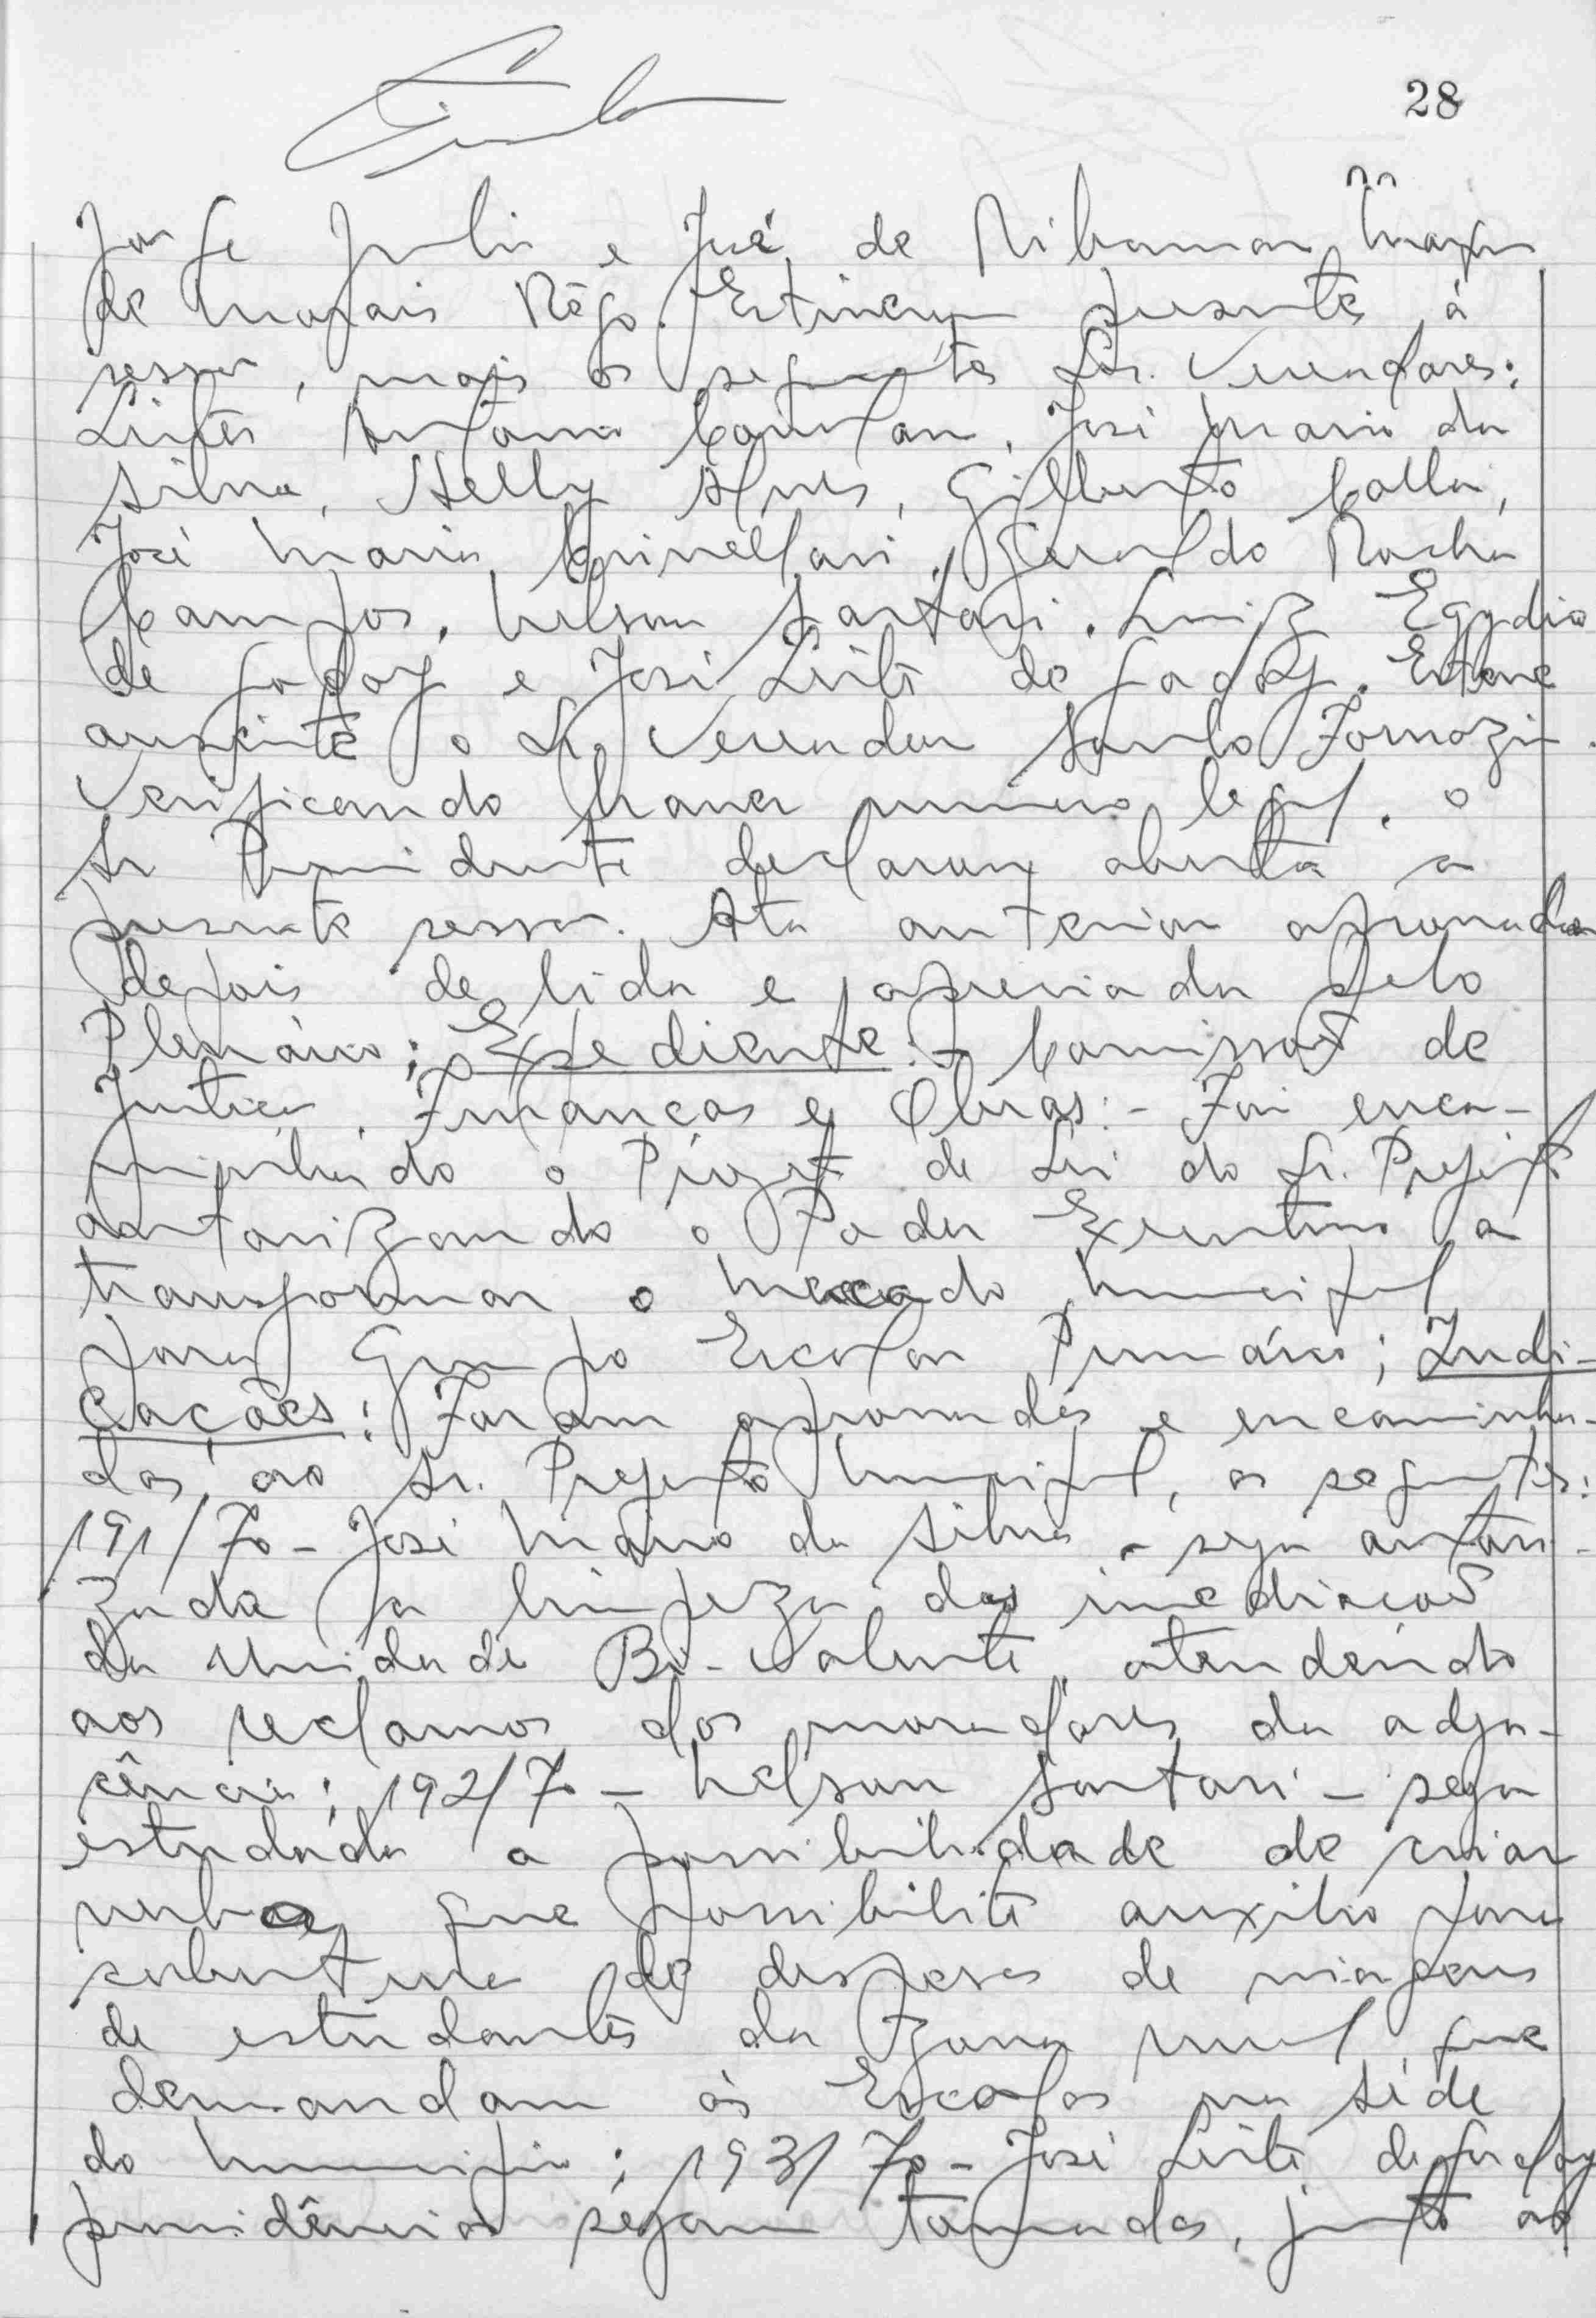 28
Jorge Julio e José de Ribamar
de Morais Rêgo. Estiveram presente à
sessão, mais os seguintes Srs. Vereadores:
Antonio José Mario da
Silva, Nelly Alves, Gilberto Calla,
José Maria Geraldo Rocha
Campos, Nelson Sartori, Luiz Egydio
de Godoy e José Leite de Godoy. Esteve
ausente o Sr. Vereador Santo Fornazin.
Verificando haver número legal, o
Sr Presidente declarou aberta a
presente sessão. Ata anterior aprovada
depois de lida e apreciada pelo
Plenário; Expediente:- Comissão de
Justiça, Finanças e Obras:- Foi enca-
minhado o Projeto de Lei do Sr. Prefeito
autorizando o Poder Executivo a
transformar o Mercado Municipal
para Grupo Escolar Primário; Indi-
cações: Foram aprovadas e encaminha-
das ao Sr. Prefeito Municipal, as seguintes:
191/70 - José Mário da Silva - seja autori-
zada a limpeza das imediações
da Unidade Bi-Valente, atendendo
aos reclamos dos moradores da adja-
cência; 192/70 - Nelson Sartori - seja
estudada a possibilidade de criar
verba que possibilite auxilio para
cobertura de despesas de viagens
de estudantes da zona rural que
demandam às Escolas na séde
do Municipio; 193/70 - José Leite de Godoy
providências sejam tomadas, junto ao